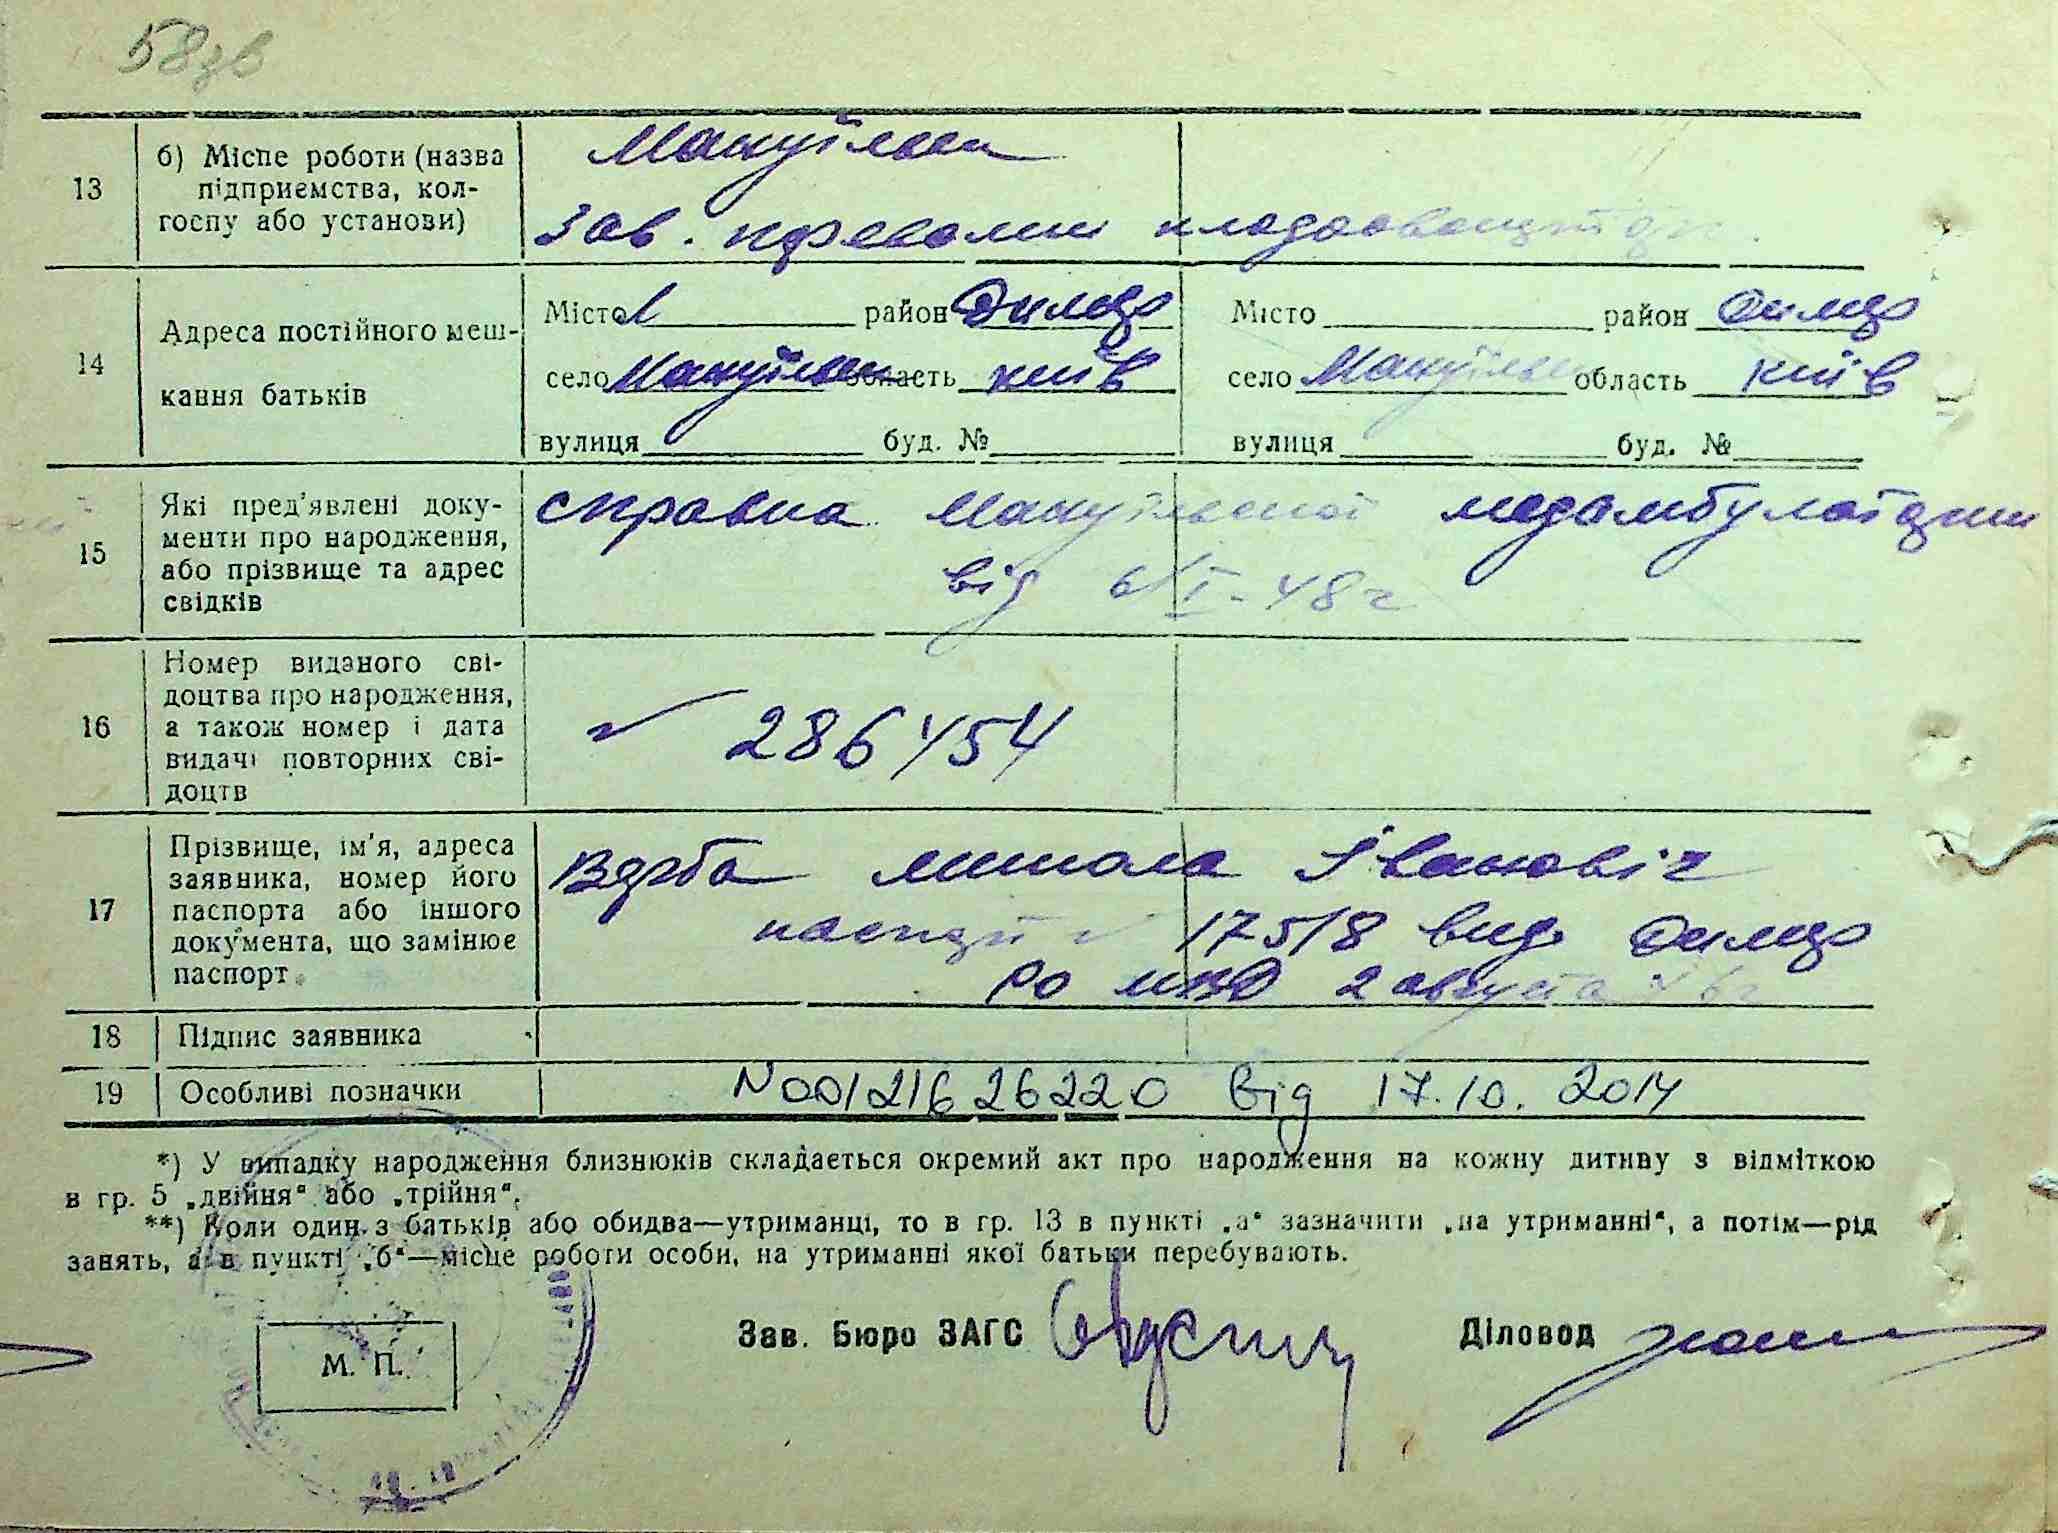 58зв
13
б) Місце роботи (назва
підприємства, кол-
госпу або установи)
Мануїльськ
Зав.
14
Адреса постійного меш-
кання батьків
Місто район Димер
село Мануїльськ область Київ
вулиця буд. №
Місто район Димер
село Мануїльськ область Київ
вулиця буд. №
15
Які пред'явлені доку-
менти про народження,
або прізвище та адрес
свідків
справка Мануїльської медамбулатории
від 6/I-48г
16
Номер виданого сві-
доцтва про народження,
а також номер і дата
видачі повторних сві-
доцтв
286454
17
Прізвище, ім'я, адреса
заявника, номер його
паспорта або іншого
документа, що замінює
паспорт.
Верба Микола Іванович
паспорт 17518 вид. Димер
РО МВД 2 августа
18 Підпис заявника
19 Особливі позначки
N00121626220 від 17.10.2014
*) У випадку народження близнюків складається окремий акт про народження на кожну дитину з відміткою
в гр. 5 „двійня" або „трійня".
**) Коли один з батьків або обидва—утриманці, то в гр. 13 в пункті „а" зазначити „на утриманні", а потім—рід
занять, а в пункті „б"—місце роботи особи, на утриманні якої батьки перебувають.
М. П.
Зав. Бюро ЗАГС
Діловод